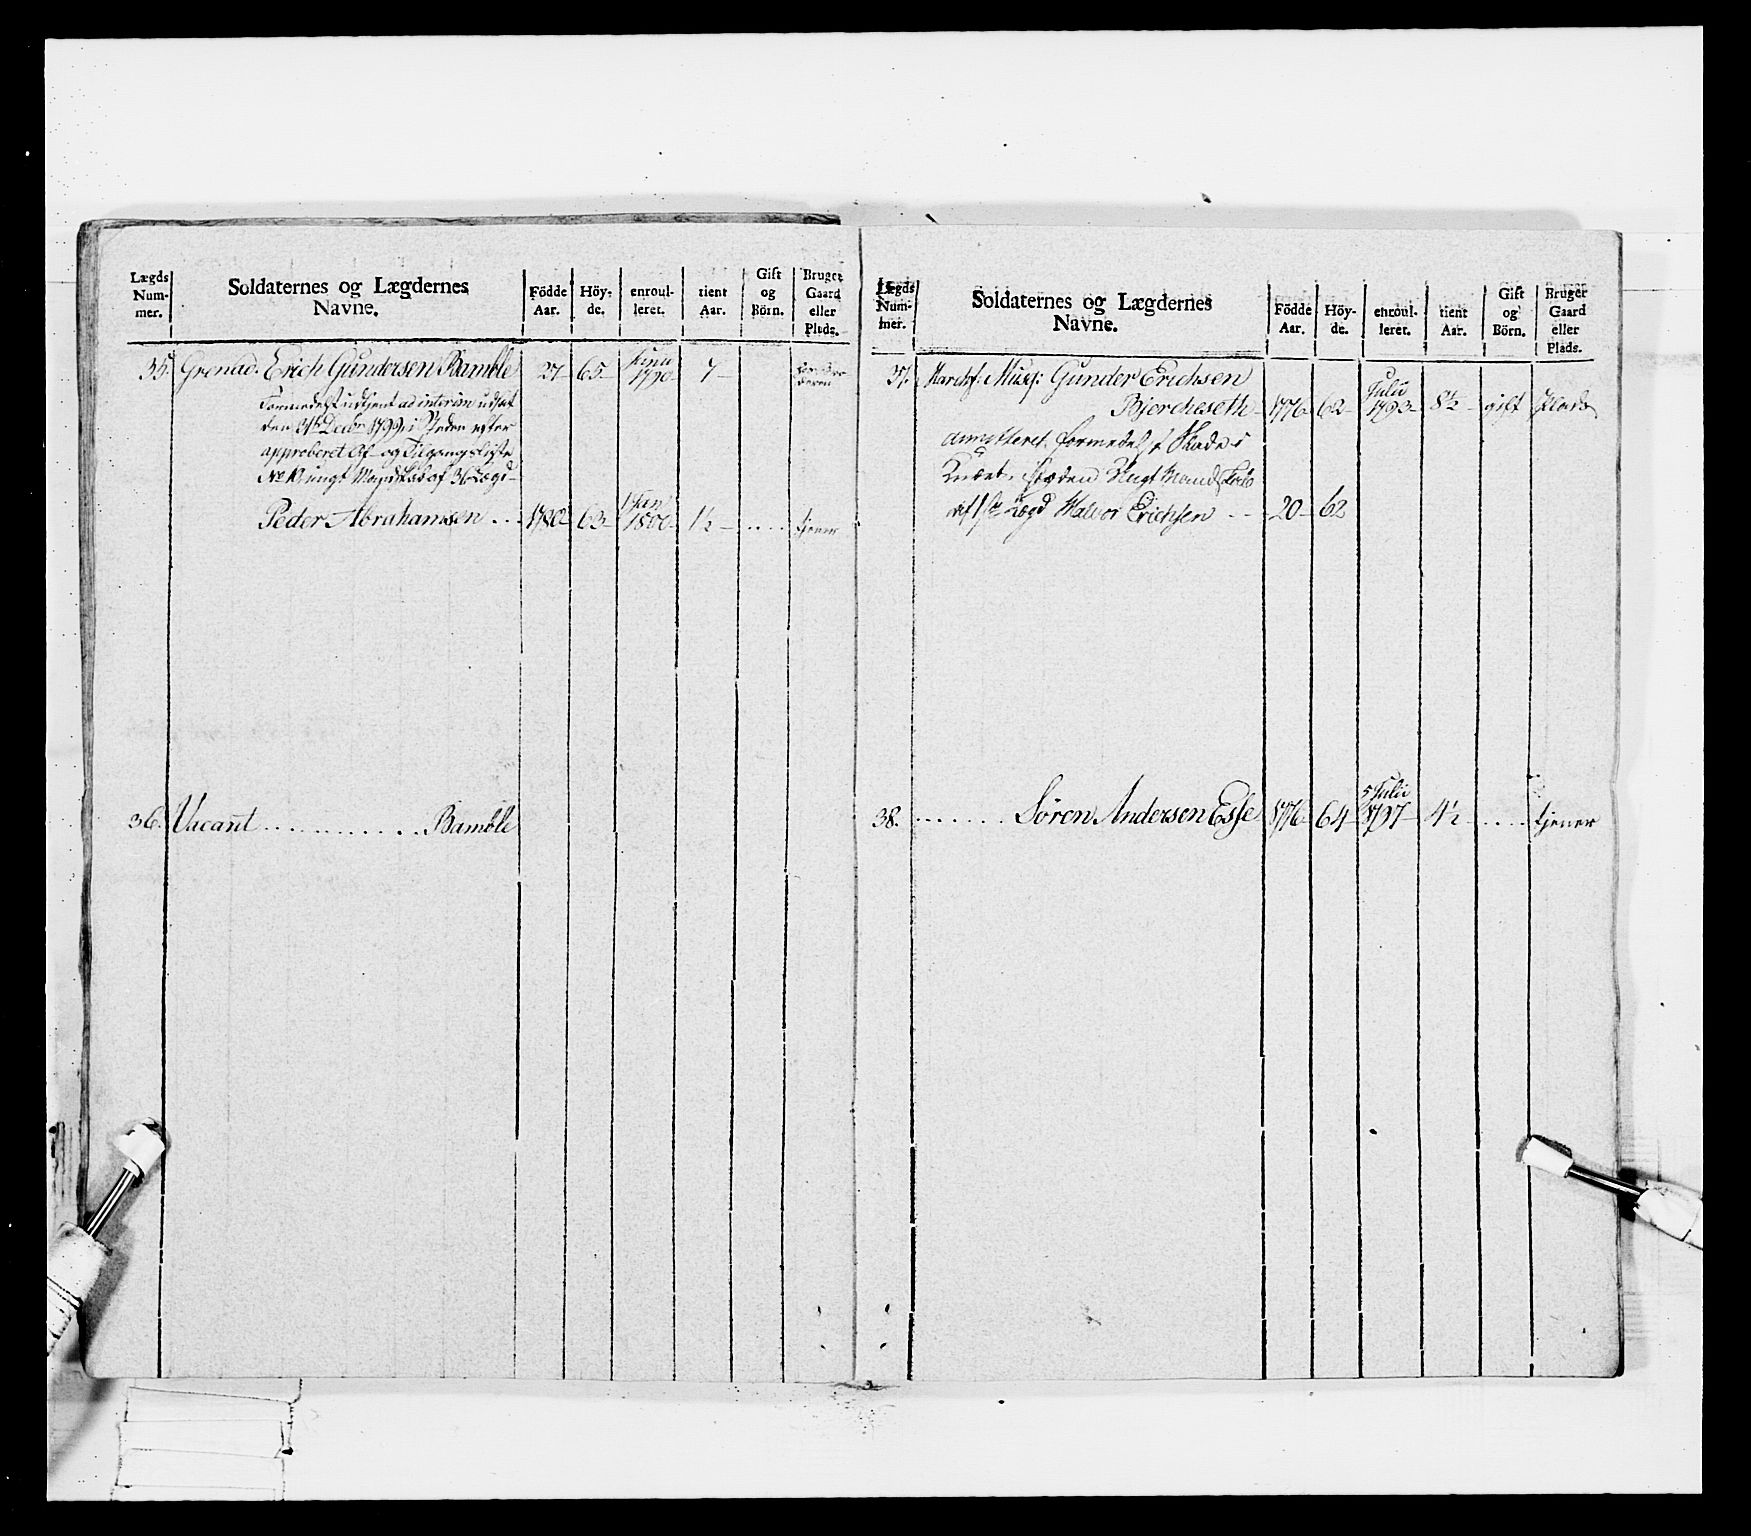 Lægds Num- mer. Soldaternes og Lægdernes Navne. Födde Aar. Höy- de. enroul- leret. tient Aar. Gift og Börn. Bruger Gaard eller Plads.
35. Grenad. Erich Gundersen Bamble 27 65 1790 7
Formedelst udtient ad interim udsat
den 31te Decbr 1799 i Steden efter
approberet Af- og Tilgangs Liste
No ungt Mandskab af 36 Lægd
Peder Abrahamsen . . . 1780 63 1 Jan 1800 1½ . . . . tjener
36. Vacant . . . . . . . . . . . . Bamble
Lægds Num- mer. Soldaternes og Lægdernes Navne. Födde Aar. Höy- de. enroul- leret. tient Aar. Gift og Börn. Bruger Gaard eller Plads.
37. Musq: Gunder Erichsen
Bjorcheseth 1776 62 Julii 1793 8½ gift Plads
formedelst Skade i
Knæet, i steden Ungt Mandskab
af Lægd Halvor Erichsen - - 20 62
38. . . . . . . . Søren Andersen Esse 1776 64 5 Julii 1797 4½ . . . . tjener